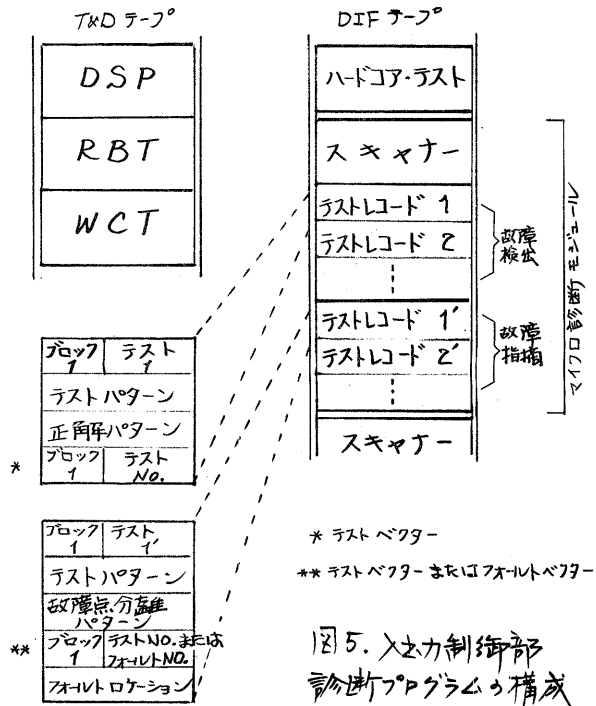 T&D テープ
DSP
RBT
WCT
DIF テープ
ハードコア・テスト
スキャナー
テストレコード 1
テストレコード 2
故障
検出
テストレコード 1'
テストレコード 2'
故障
指摘
スキャナー
マイクロ診断モジュール
ブロック テスト
1 1
テストパターン
正解パターン
ブロック テスト
1 No.
*
ブロック テスト
1 1'
テストパターン
故障点分離
パターン
ブロック テストNO.または
1 フォールトNO.
フォールトロケーション
**
* テストベクター
** テストベクターまたはフォールトベクター
図5. 入出力制御部
診断プログラムの構成